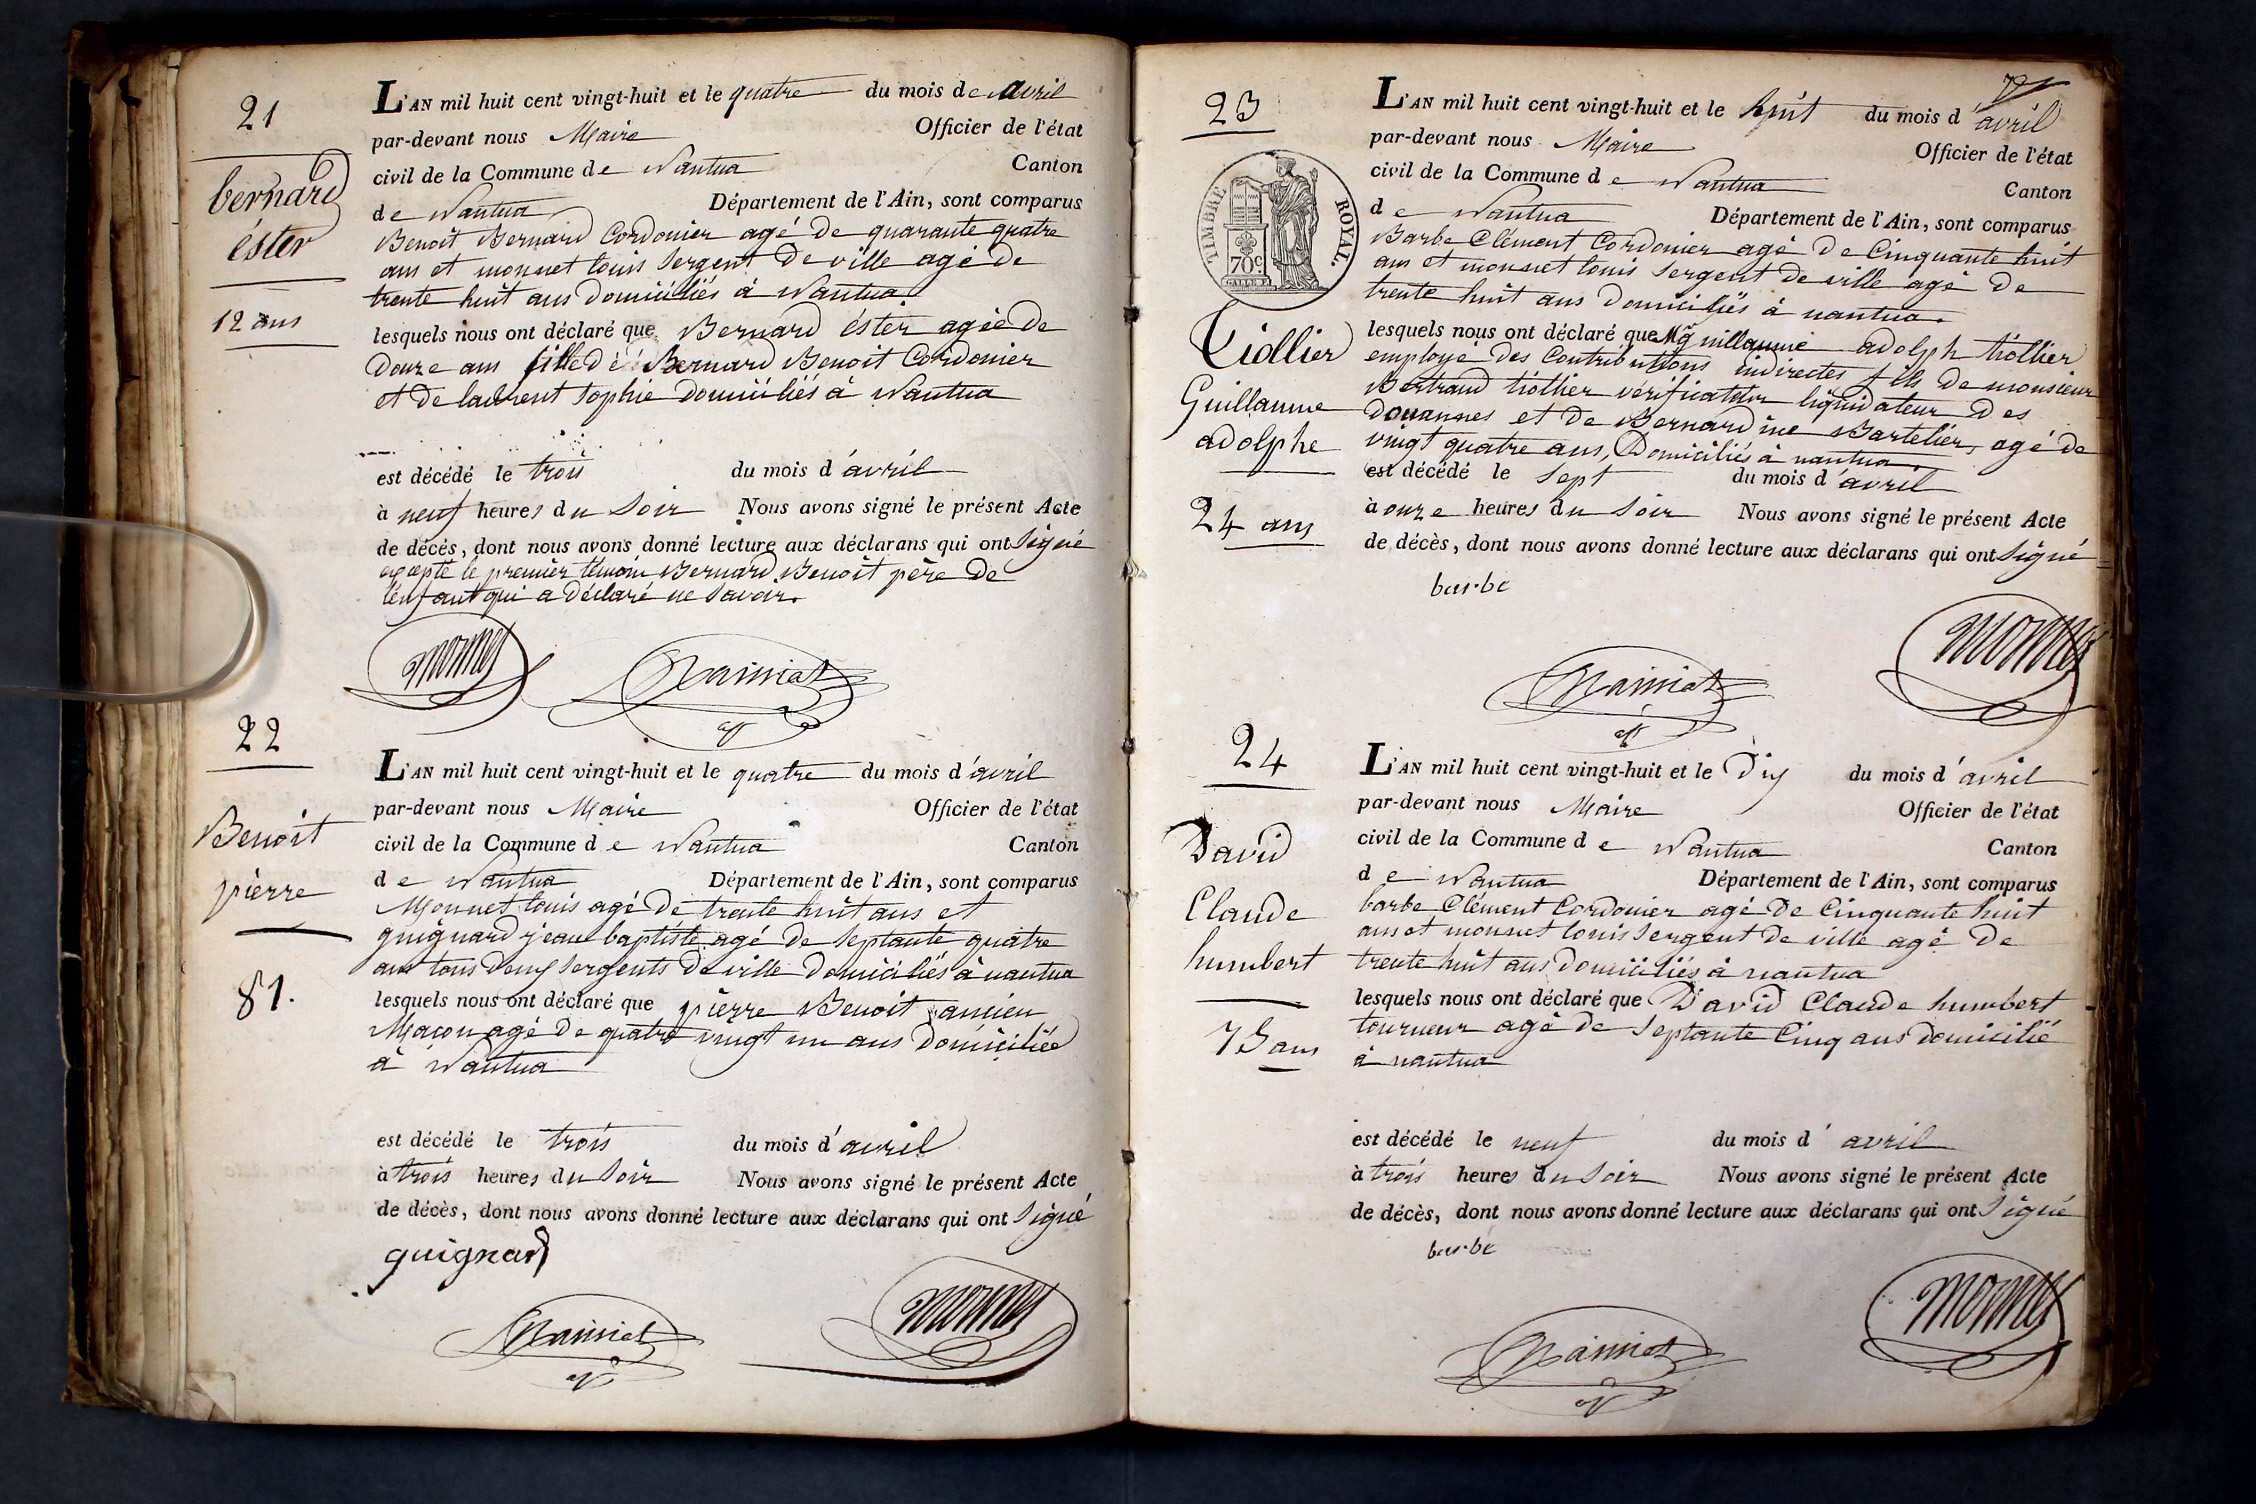 21
bernard
éster
12 ans
L'AN mil huit cent vingt-huit et le quatre du mois de avril
par-devant nous Maire Officier de l'état
civil de la Commune de Nantua Canton
de Nantua Département de l'Ain, sont comparus
Benoit Bernard Cordonier agé de quarante quatre
ans et monnet louis Sergent de ville agé de
trente huit ans domiciliés à Nantua.
lesquels nous ont déclaré que Bernard éster agée de
douze ans fille dé Bernard Benoit Cordonier
et de laurent sophie domiciliés à Nantua
est décédé le trois du mois d'avril
à neuf heures du soir Nous avons signé le présent Acte
de décès, dont nous avons donné lecture aux déclarans qui ont signé
excepté le premier témoin Bernard Benoit père de
l'enfant qui a déclaré ne savoir.
monnet
22
Benoit
pierre
81.
L'AN mil huit cent vingt-huit et le quatre du mois d'avril
par-devant nous Maire Officier de l'état
civil de la Commune de Nantua Canton
de Nantua Département de l'Ain, sont comparus
Monnet louis agé de trente huit ans et
guignard jean baptiste agé de septante quatre
ans tous deux sergents de ville domiciliés à nantua
lesquels nous ont déclaré que pierre Benoit ancien
Maçon agé de quatre vingt un ans domicilié
à Nantua
est décédé le trois du mois d'avril
à trois heures du soir Nous avons signé le présent Acte
de décès, dont nous avons donné lecture aux déclarans qui ont signé
guignard
monnet
23
TIMBRE ROYAL.
70 c
tiollier
Guillaume
adolphe
24 ans
L'AN mil huit cent vingt-huit et le huit du mois d'avril
par-devant nous Maire Officier de l'état
civil de la Commune de Nantua Canton
de Nantua Département de l'Ain, sont comparus
Barbe Clément Cordonier agé de Cinquante huit
ans et monnet louis sergent de ville agé de
trente huit ans domiciliés à nantua.
lesquels nous ont déclaré que Mr guillaume adolph tiollier
employé des Contributions indirectes fils de monsieur
Bertrand tiollier vérificateur liquidateur des
douannes et de Bernardine Bartelier, agé de
vingt quatre ans, Domiciliés à nantua.
est décédé le sept du mois d'avril
à onze heures du soir Nous avons signé le présent Acte
de décès, dont nous avons donné lecture aux déclarans qui ont signé
barbe
monnet
24
David
Claude
humbert
75 ans
L'AN mil huit cent vingt-huit et le dix du mois d'avril
par-devant nous Maire Officier de l'état
civil de la Commune de Nantua Canton
de Nantua Département de l'Ain, sont comparus
barbe Clément Cordonier agé de Cinquante huit
ans et monnet louis sergent de ville agé de
trente huit ans domiciliés à nantua
lesquels nous ont déclaré que David Claude humbert
tourneur agé de septante Cinq ans domicilié
à nantua
est décédé le neuf du mois d'avril
à trois heures du soir Nous avons signé le présent Acte
de décès, dont nous avons donné lecture aux déclarans qui ont signé
barbe
monnet